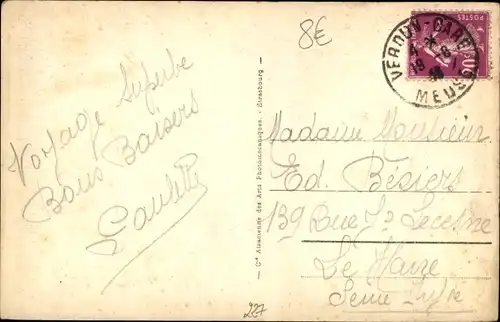 8E
VERDUN-GARE
MEUSE
POSTES
Voyage Superbe
Bons Baisers
Paulette
Cie Alsacienne des Arts Photomécaniques - Strasbourg
Madame Monsieur
Ed. Béziers
139 Rue Js Lecesne
Le Havre
Seine Infre
227